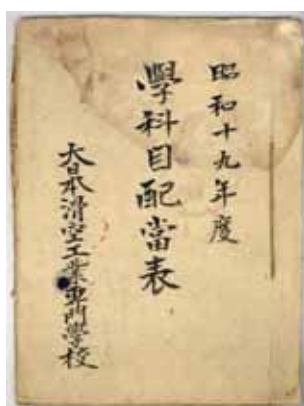 昭和十九年度
學科目配當表
大日本滑空工業專門學校